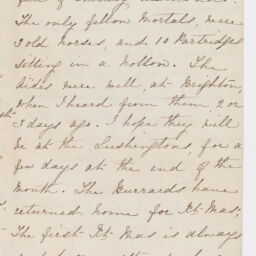 The only fellow Mortals, were
3 old horses, and 10 Partridges
sitting in a hollow. The
were well at Brighton,
when I heard from them, 2 or
3 days ago. I hope they will
be at the Lushingtons, for a
few days at the end of the
month. The Gurrards have
returned home for Xt-Mas;
The first Xt-Mas is always